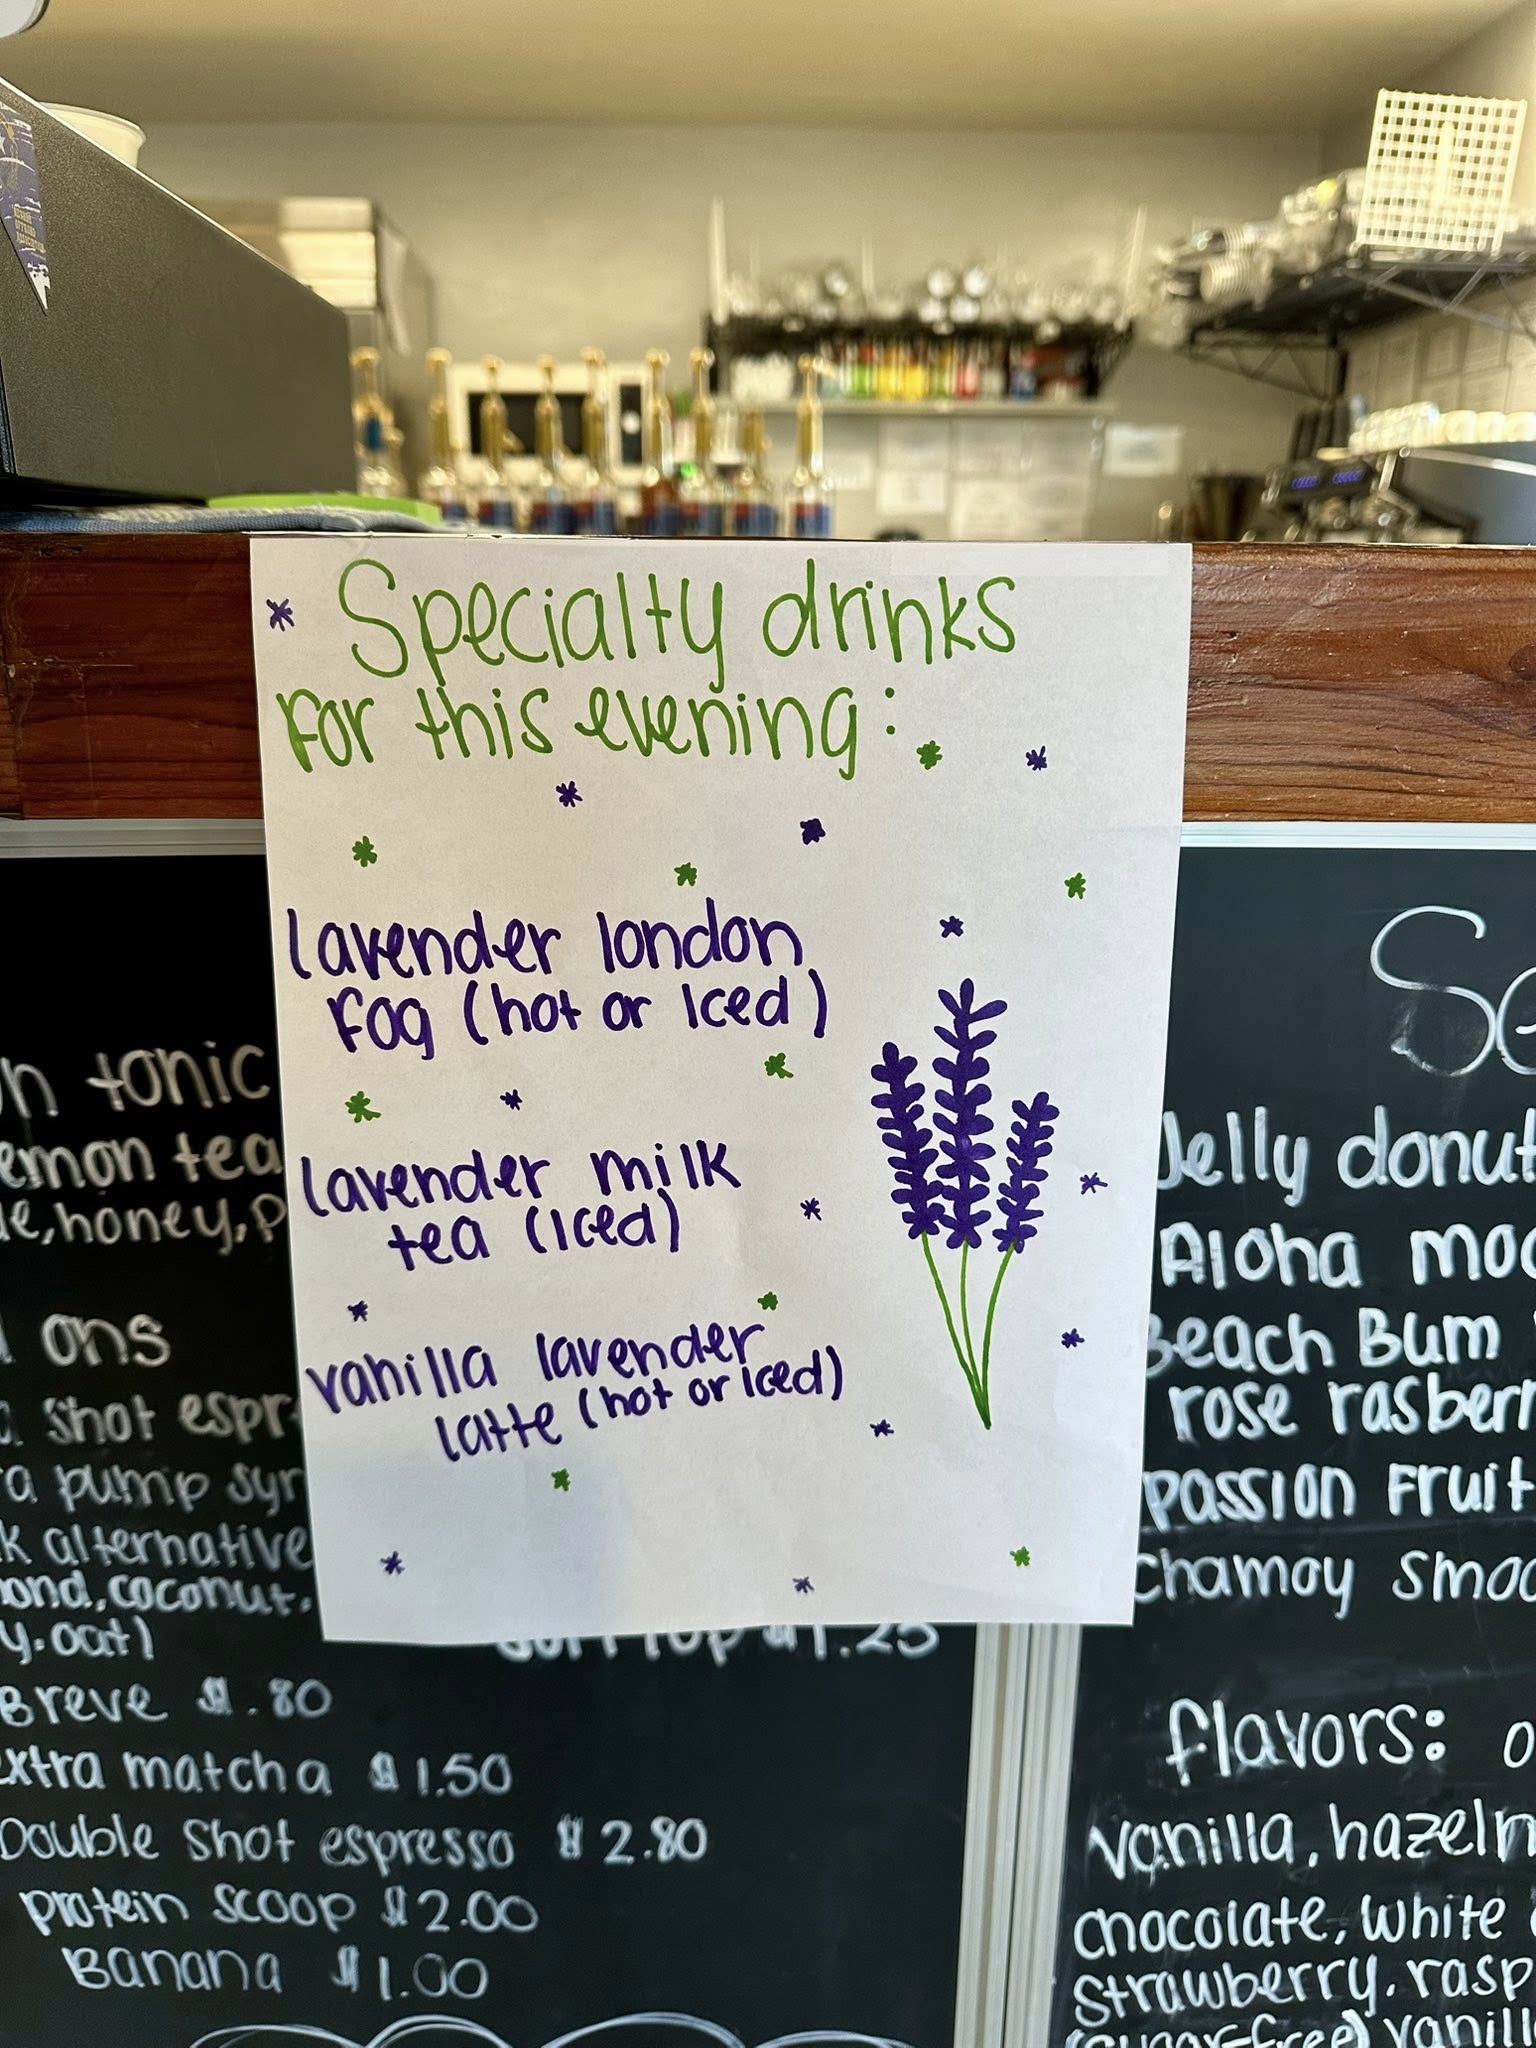 Specialty drinks
For this evening:
lavender london
Fog (hot or iced)
lavender milk
tea (iced)
vanilla lavender
latte (hot or iced)
tonic
tea
honey,
ons
shot
pump
alternative
coconut,
oat)
Breve $.80
extra matcha $1.50
Double shot espresso $2.80
protein scoop $2.00
Banana $1.00
$1.25
Jelly
Aloha
Beach Bum
rose
passion Fruit
chamoy
flavors:
vanilla,
chocolate, white
strawberry,
(sugar-free)